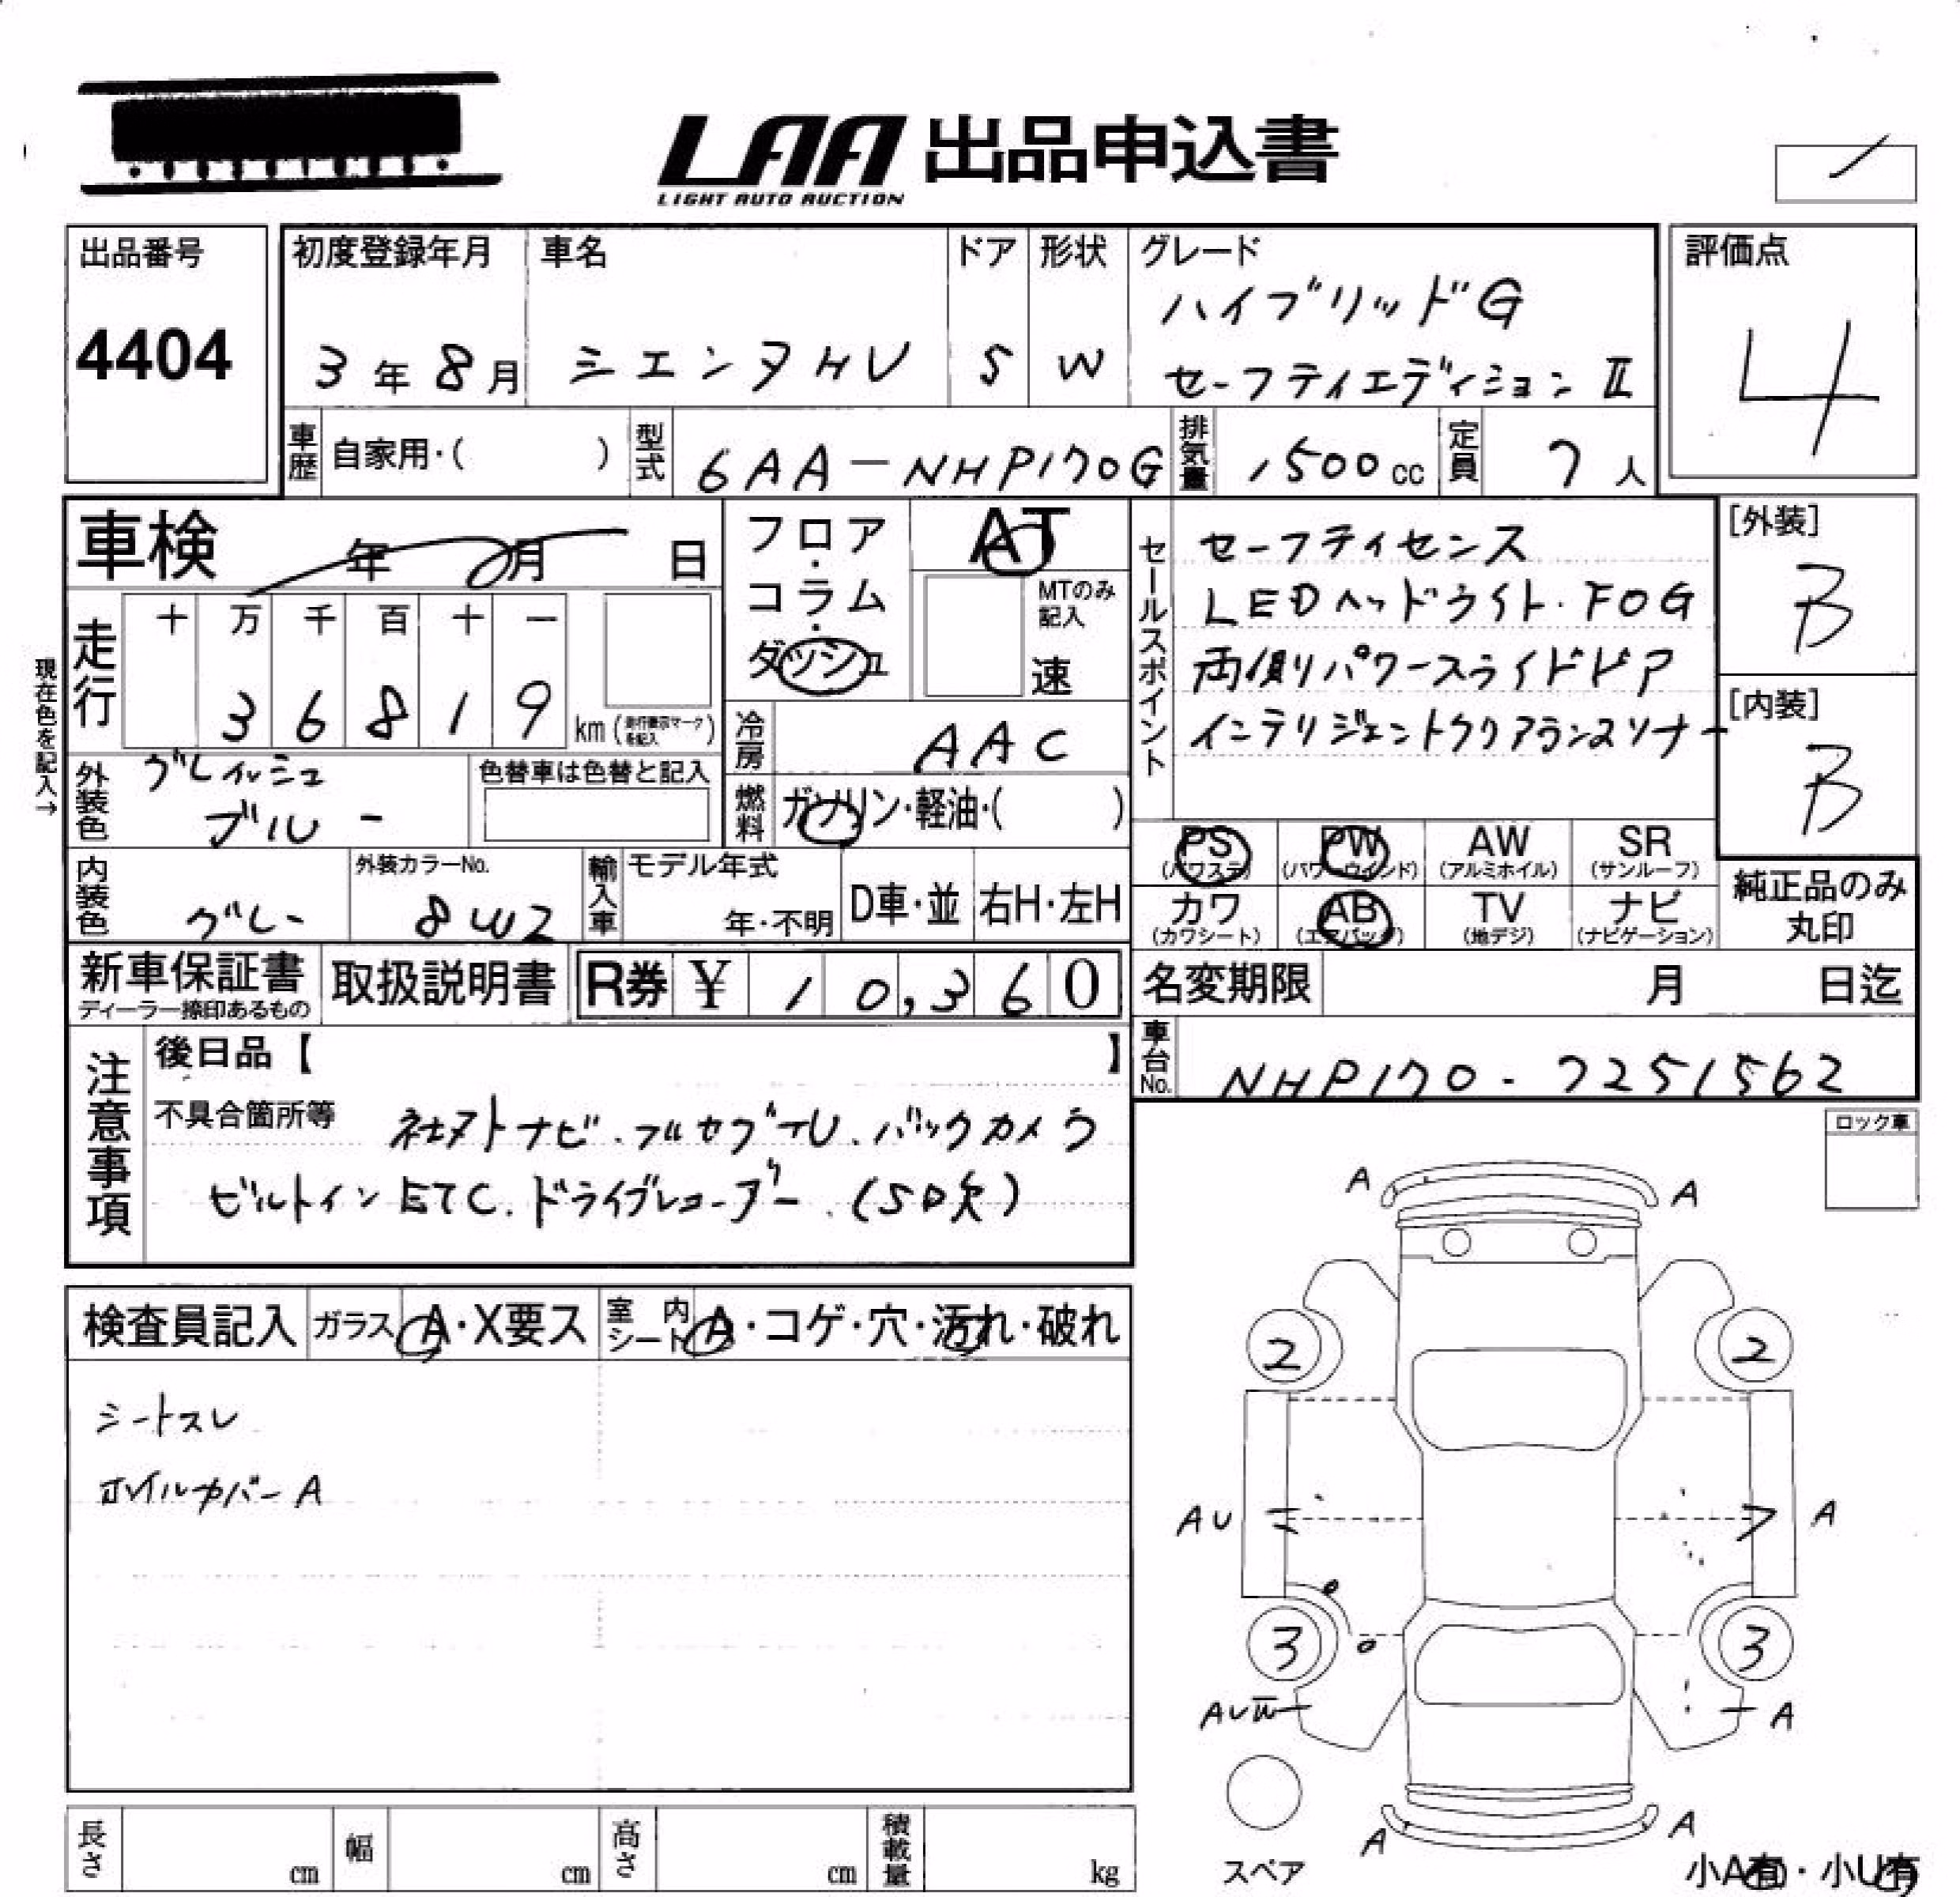 LAA 出品申込書
LIGHT AUTO AUCTION
出品番号
4404
初度登録年月
3年8月
車名
シエンタHV
ドア
5
形状
W
グレード
ハイブリッドG
セーフティエディションⅡ
評価点
4
車歴 自家用・( )
型式 6AA-NHP170G
排気量 1500cc
定員 7人
車検 年 月 日
フロア・コラム・ダッシュ
AT
MTのみ記入
速
現在色を記入→
走行 十 万 千 百 十 一
3 6 8 1 9 km(走行表示マークを記入)
冷房 AAC
燃料 ガソリン・軽油・( )
外装色 グレイッシュ
ブルー
色替車は色替と記入
内装色 グレー
外装カラーNo.
8W2
輸入車 モデル年式
年・不明
D車・並
右H・左H
セールスポイント
セーフティセンス
LEDヘッドライト・FOG
両側パワースライドドア
インテリジェントクリアランスソナー
[外装]
B
[内装]
B
PS (パワステ) PW (パワーウインド) AW (アルミホイル) SR (サンルーフ)
カワ (カワシート) AB (エアバッグ) TV (地デジ) ナビ (ナビゲーション)
純正品のみ丸印
新車保証書
ディーラー捺印あるもの
取扱説明書
R券 ¥ 10,360
名変期限 月 日迄
車台No. NHP170-7251562
注意事項
後日品【 】
不具合箇所等 社外ナビ.フルセグTV.バックカメラ
ビルトインETC.ドライブレコーダー.(SD欠)
ロック車
検査員記入 ガラス A・X要ス 室内シート A・コゲ・穴・汚れ・破れ
シートスレ
ホイルカバーA
A A
2 2
AU A
3 3
A
A A
スペア
小A有・小U有
長さ cm 幅 cm 高さ cm 積載量 kg